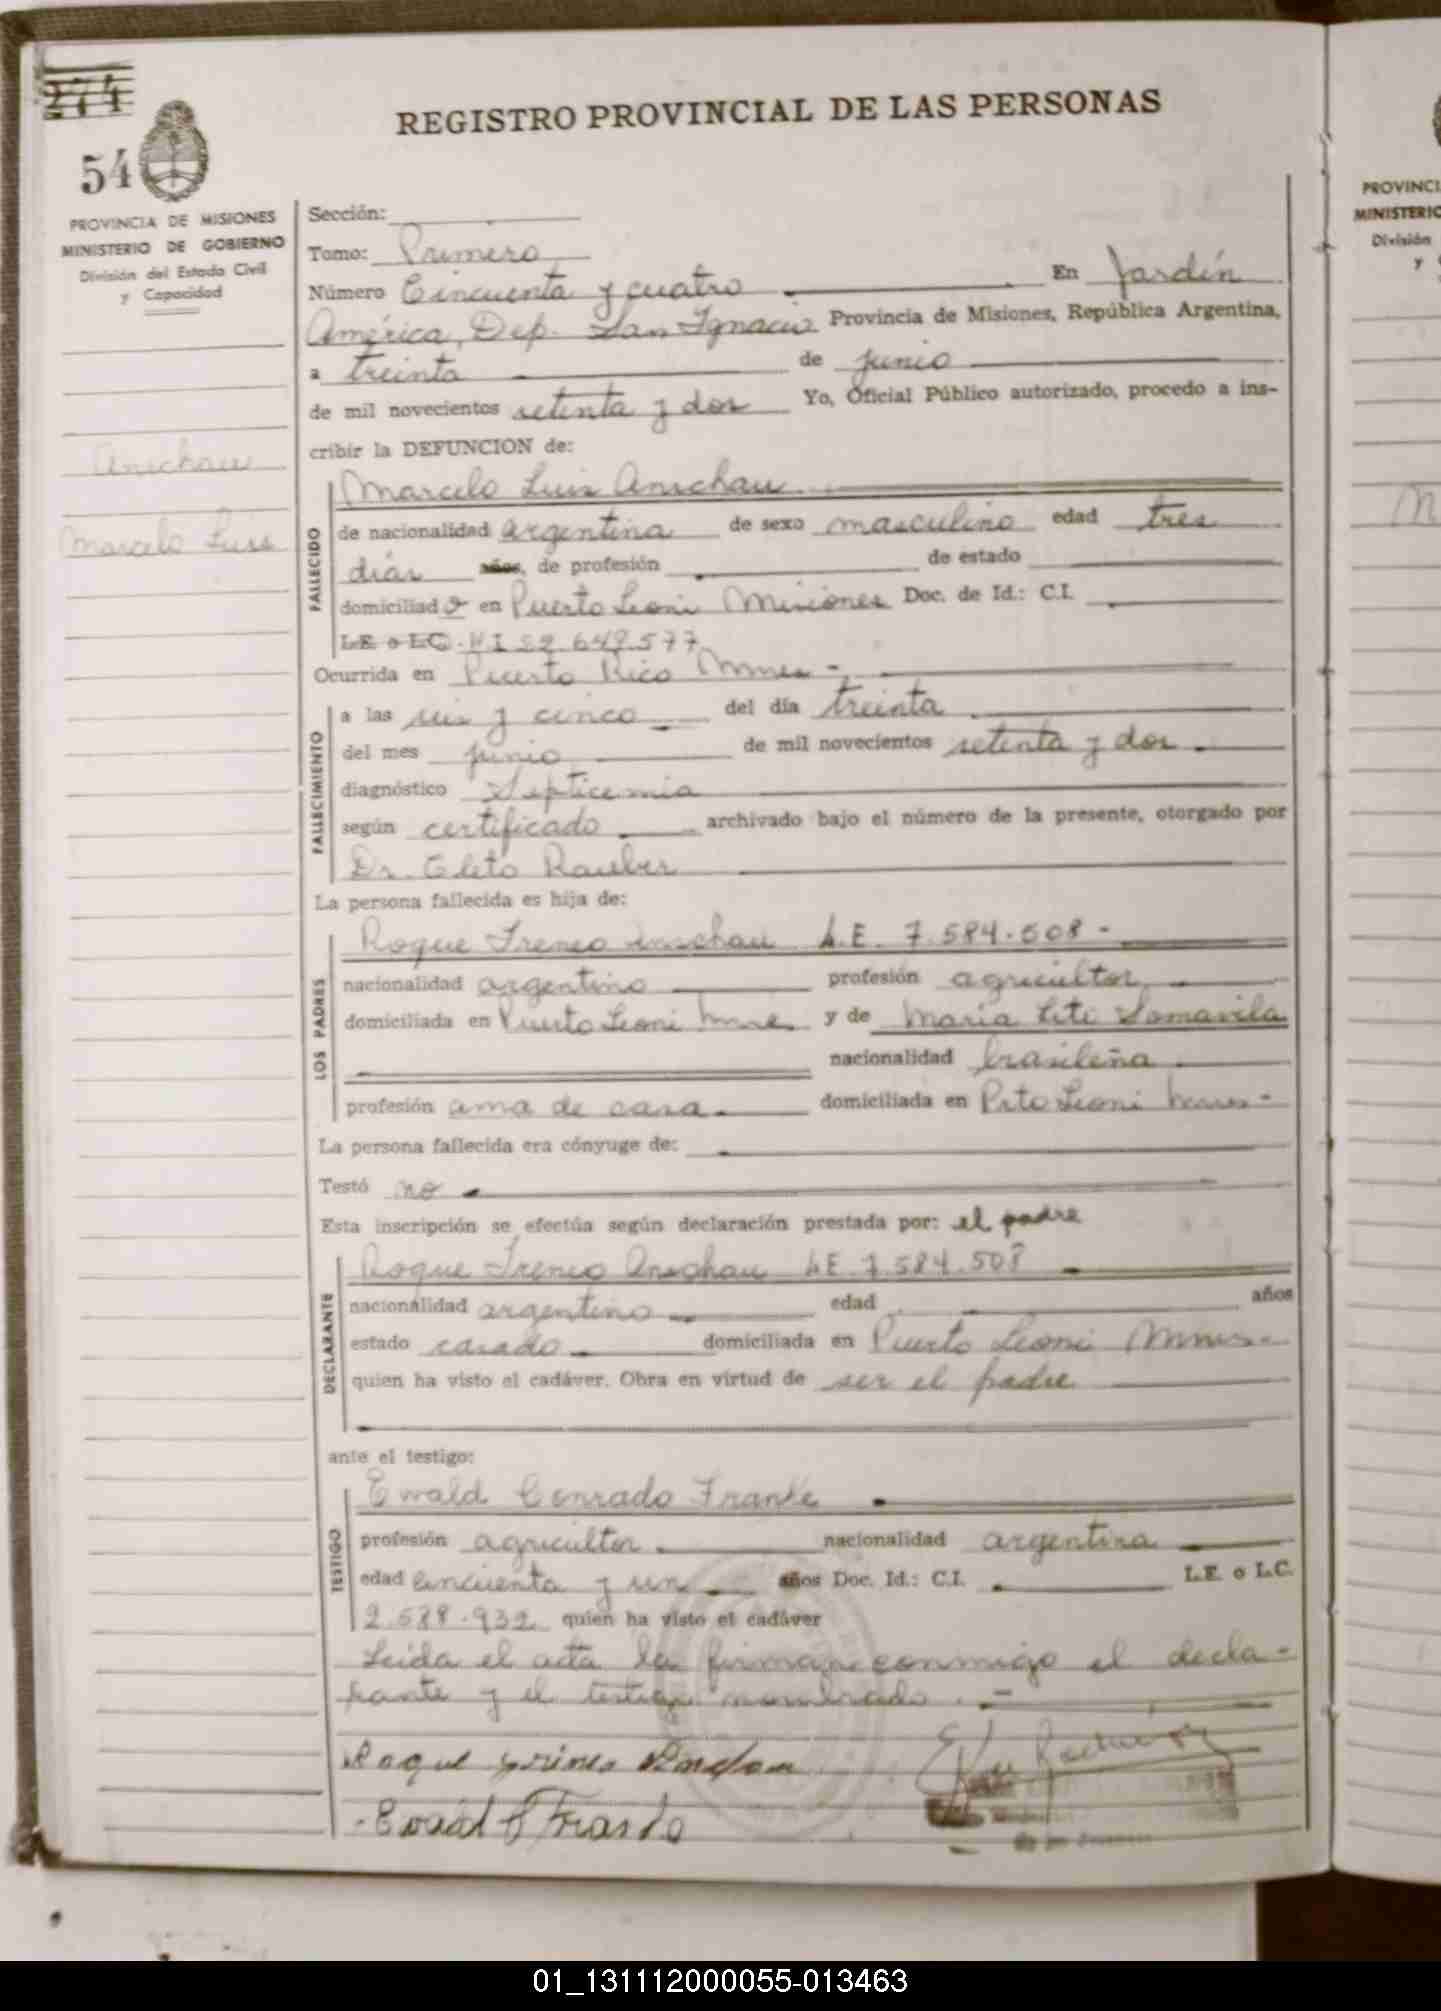 274
54
REGISTRO PROVINCIAL DE LAS PERSONAS
PROVINCIA DE MISIONES
MINISTERIO DE GOBIERNO
División del Estado Civil
y Capacidad
Anschau
Marcelo Luis
Sección:
Tomo: Primero
Número Cincuenta y cuatro En Jardín
América, Dep. San Ignacio Provincia de Misiones, República Argentina,
a treinta de junio
de mil novecientos setenta y dos Yo, Oficial Público autorizado, procedo a ins-
cribir la DEFUNCION de:
FALLECIDO
Marcelo Luis Anschau
de nacionalidad argentina de sexo masculino edad tres
días años, de profesión de estado
domiciliado en Puerto Leoni Misiones Doc. de Id.: C.I.
L.E. o L.C. 649.577
Ocurrida en Puerto Rico Mnes -
FALLECIMIENTO
a las seis y cinco del día treinta
del mes junio de mil novecientos setenta y dos
diagnóstico Septicemia
según certificado archivado bajo el número de la presente, otorgado por
Dr. Cleto Rauber
La persona fallecida es hija de:
LOS PADRES
Roque Ireneo Anschau L.E. 7.584.508 -
nacionalidad argentino profesión agricultor
domiciliada en Puerto Leoni Mnes y de Maria Somavila
nacionalidad brasileña
profesión ama de casa domiciliada en Pto Leoni Mnes -
La persona fallecida era cónyuge de:
Testó no
Esta inscripción se efectúa según declaración prestada por: el padre
DECLARANTE
Roque Ireneo Anschau L.E. 7.584.508
nacionalidad argentino edad años
estado casado domiciliada en Puerto Leoni Mnes -
quien ha visto el cadáver. Obra en virtud de ser el padre
ante el testigo:
TESTIGO
Ewald Conrado Franke
profesión agricultor nacionalidad argentina
edad cincuenta y un años Doc. Id.: C.I. L.E. o L.C.
quien ha visto el cadáver
Leida el acta la firman conmigo el decla-
rante y el testigo nombrado. -
Roque
Ewald
PROVINCI
MINISTERIO
División
y
M
01_131112000055-013463